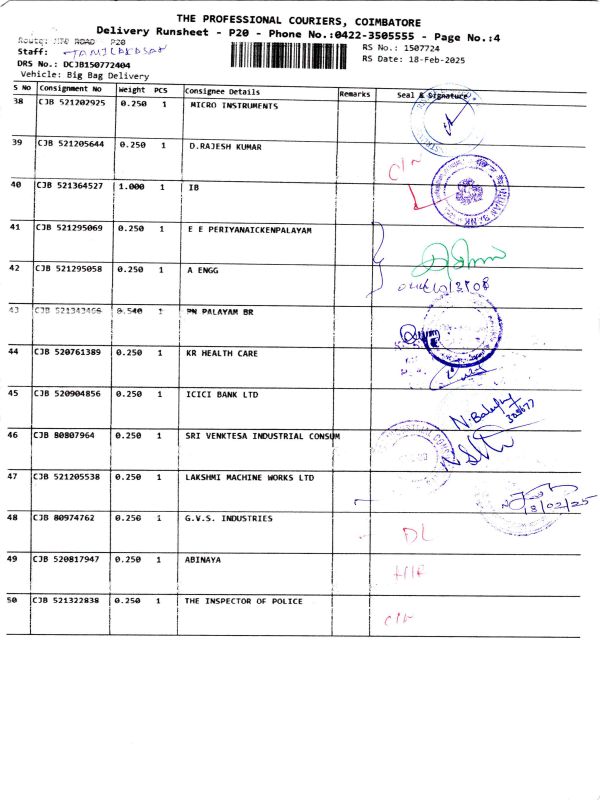 THE PROFESSIONAL COURIERS, COIMBATORE
Delivery Runsheet - P20 - Phone No.:0422-3505555 - Page No.:4
ROAD P20
Staff:
DRS No.: DCJB150772404
Vehicle: Big Bag Delivery
RS No.: 1507724
RS Date: 18-Feb-2025
S No Consignment No Weight PCS Consignee Details Remarks Seal & Signature
38 CJB 521202925 0.250 1 MICRO INSTRUMENTS
39 CJB 521205644 0.250 1 D.RAJESH KUMAR
40 CJB 521364527 1.000 1 IB
41 CJB 521295069 0.250 1 E E PERIYANAICKENPALAYAM
42 CJB 521295058 0.250 1 A ENGG
43 CJB 0.540 1 PN PALAYAM BR
44 CJB 520761389 0.250 1 KR HEALTH CARE
45 CJB 520904856 0.250 1 ICICI BANK LTD
46 CJB 80807964 0.250 1 SRI VENKTESA INDUSTRIAL CONSUM
47 CJB 521205538 0.250 1 LAKSHMI MACHINE WORKS LTD
18/02/25
48 CJB 80974762 0.250 1 G.V.S. INDUSTRIES DL
49 CJB 520817947 0.250 1 ABINAYA
50 CJB 521322838 0.250 1 THE INSPECTOR OF POLICE